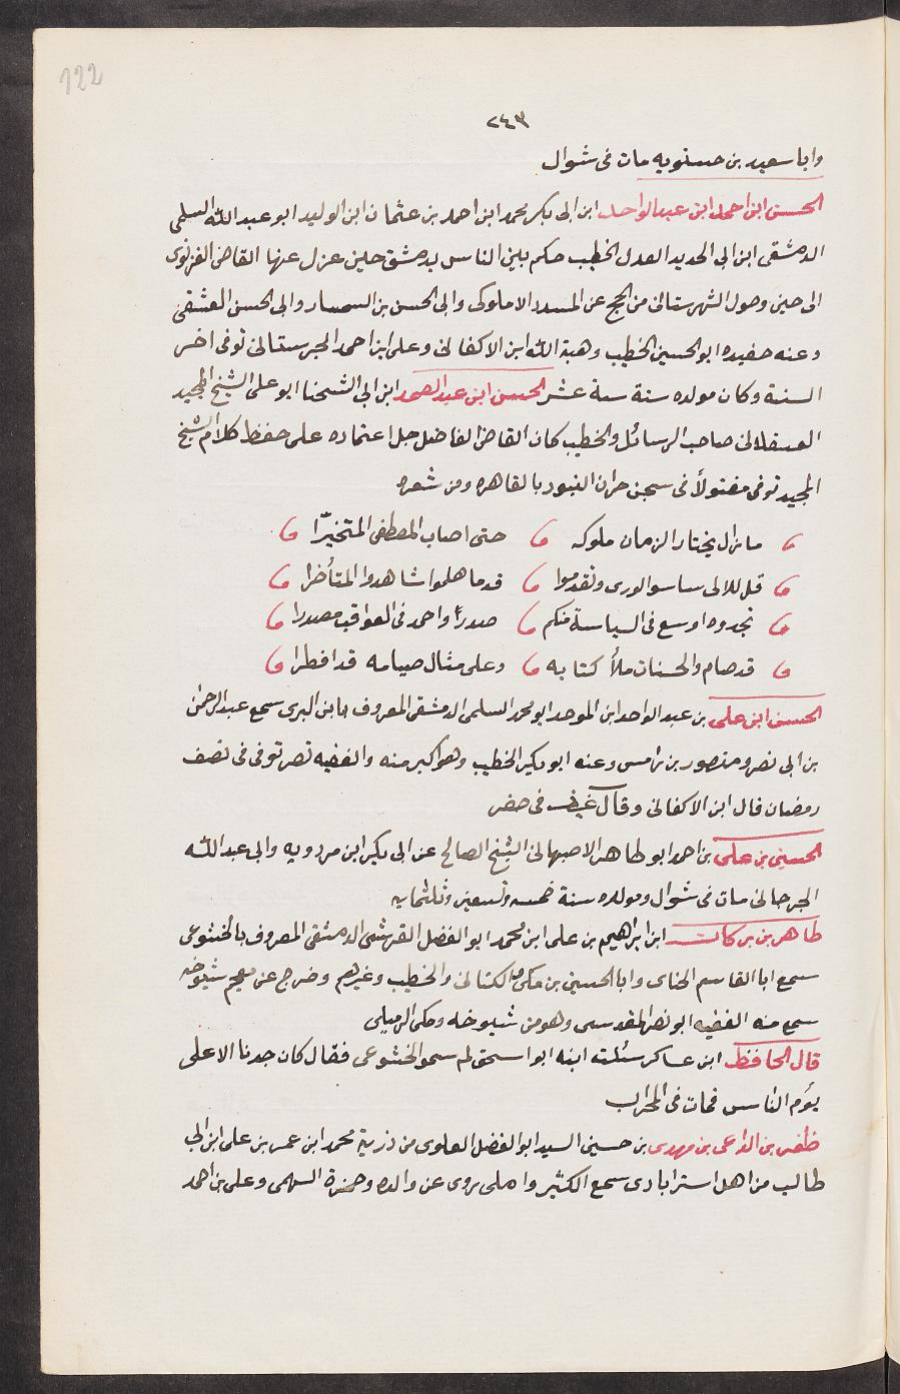 122
٢٤٣
وابا سعيد بن حسنويه مات فى شوال
الحسن ابن احمد ابن عبد الواحد ابن ابى بكر محمد ابن احمد بن عثمان ابن الوليد ابو عبد الله السلمى
الدمشقى ابن ابى الحديد العدل الخطيب حكم بين الناس بدمشق حين عزل عنها القاضى الغزنوى
الى حين وصول الشهرستانى من الحج عن المسدد الاملوكى وابى الحسن بن السمسار وابى الحسن العتيقى
وعنه حفيده ابو الحسين الخطيب وهبة الله ابن الاكفانى وعلى ابن احمد الجرستانى توفى اخر
السنة وكان مولده سنة ستة عشر الحسن ابن عبد الصمد ابن ابى الشخنا ابو على الشيخ المجيد
العسقلانى صاحب الرسائل والخطب كان القاضى الفاضل جل اعتماده على حفظ كلام الشيخ
المجيد توفى مقتولاً فى سجن خزان البنود بالقاهره ومن شعره
ما زال يختار الزمان ملوكه حتى اصاب المصطفى المتخيّرا
قل للالى ساسو الورى وتقدموا قدما هلموا شاهدوا المتأخرا
تجدوه اوسع فى السياسة منكم صدرًا واحمد فى العواقب مصدرا
قد صام والحسنات ملأ كتابه وعلى مثال صيامه قد افطرا
الحسن ابن على بن عبد الواحد ابن الموحد ابو محمد السلمى الدمشقى المعروف بابن البرى سمع عبد الرحمن
بن ابى نصر ومنصور بن رامس وعنه ابو بكر الخطيب وهو اكبر منه والفقيه نصر توفى فى نصف
رمضان قال ابن الاكفانى وقال غيث فى صفر
الحسين بن على بن احمد ابو طاهر الاصبهانى الشيخ الصالح عن ابى بكر ابن مردويه وابى عبد الله
الجرجانى مات فى شوال ومولده سنة خمسه وتسعين وثلثمايه
طاهر بن بركات ابن ابراهيم بن على ابن محمد ابو الفضل القرشى الدمشقى المعروف بالخشوعى
سمع ابا القاسم الحناى وابا الحسين بن مكى والكتانى والخطيب وغيرهم وخرج عن معجم شيوخه
سمع منه الفقيه ابو نصر المقدسى وهو من شيوخه ومكى الرميلى
قال الحافظ ابن عساكر سئلت ابنه ابو اسحق لم سمو الخشوعى فقال كان جدنا الاعلى
يؤم الناس فمات فى المحراب
ظفر بن الداعى بن مهدى بن حسين السيد ابو الفضل العلوى من ذرية محمد ابن عمر بن على ابن ابى
طالب من اهل استراباد سمع الكثير واملى يروى عن والده وحمزة السهمى وعلى بن احمد